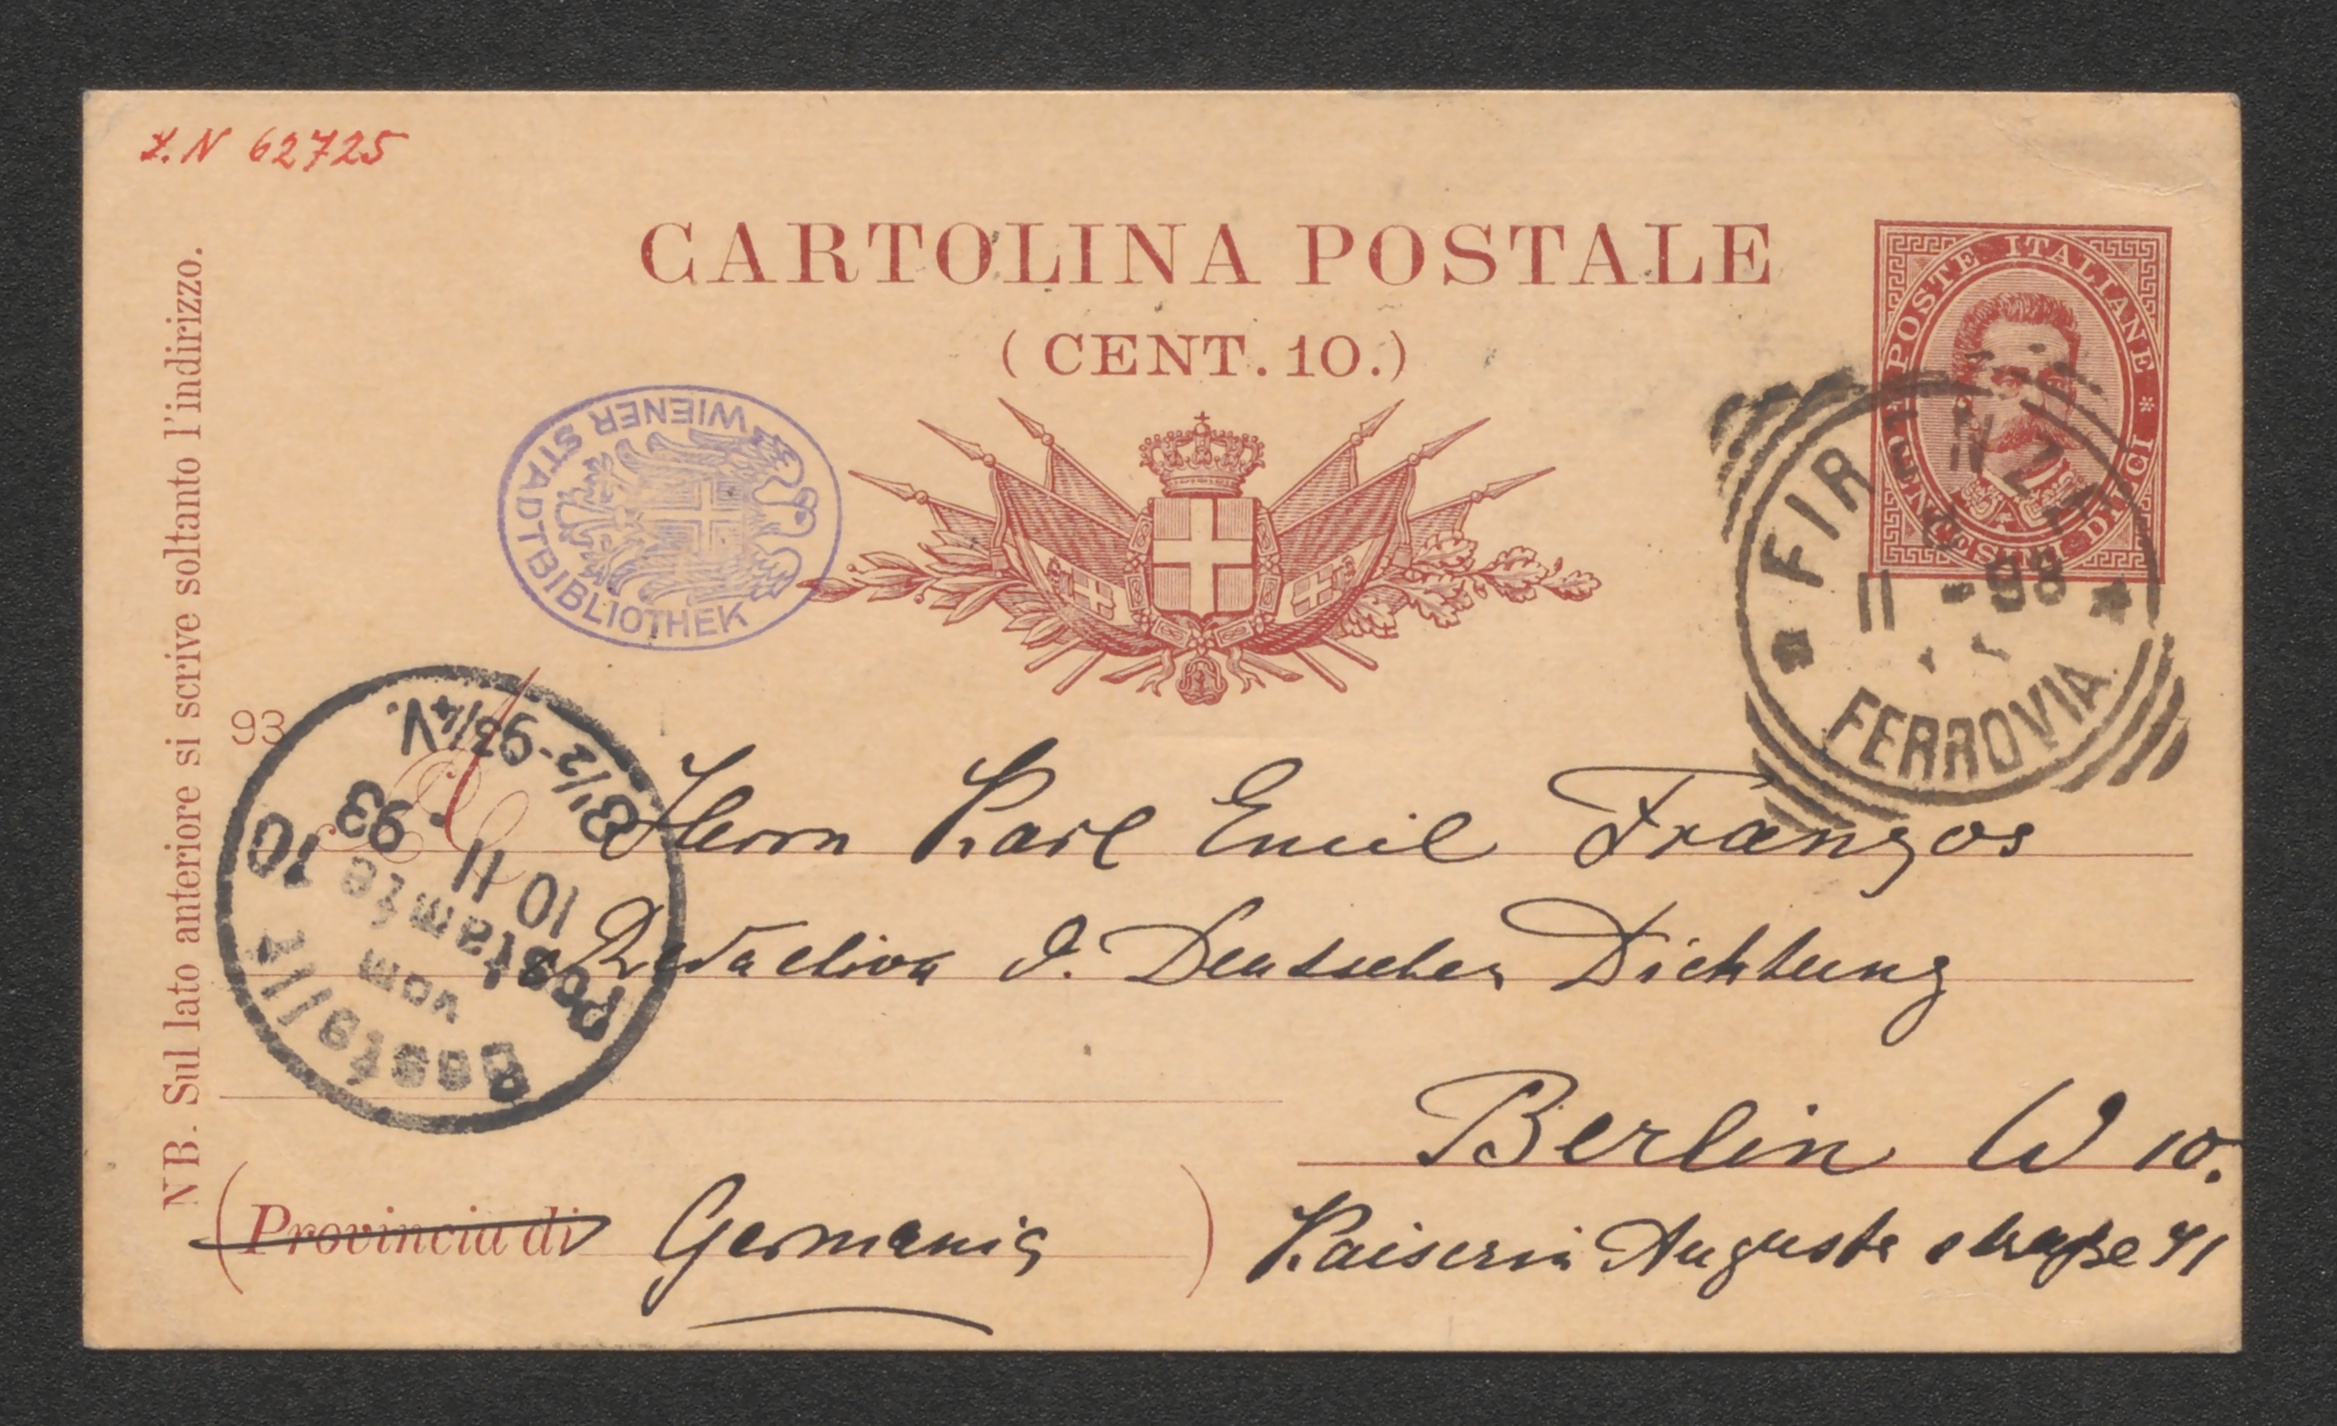 I.N 62725
CARTOLINA POSTALE
(CENT. 10.)
POSTE ITALIANE * CENTESIMI DIECI *
WIENER STADTBIBLIOTHEK
FIRENZA
11 -93
FERROVIA
NB. Sul lato anteriore si scrive soltanto l'indirizzo.
93
A
Bestellt
vom
Postamte 10
10 11 93
8 1/2-9 3/4 V.
Herrn Karl Emil Franzos
Redaction d. Deutschen Dichtung
Berlin W 10.
(Provincia di Germania)
Kaiserin Augusta straße 71